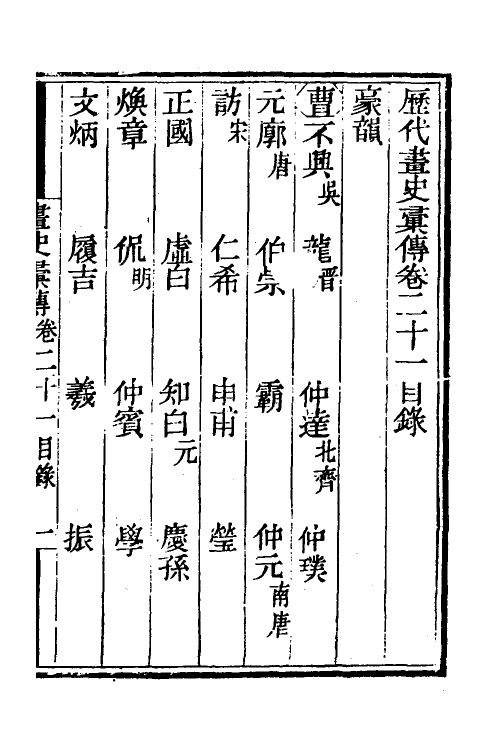 歷代畫史彙傳卷二十一目錄
豪韻
曹不興吳 龍晋 仲達北齊 仲璞
元廓唐 伯宗 霸 仲元南唐
訪宋 仁希 申甫 瑩
正國 虛白 知白元 慶孫
煥章 侃明 仲賓 學
文炳 履吉 羲 振
畫史彙傳卷二十一目錄 一